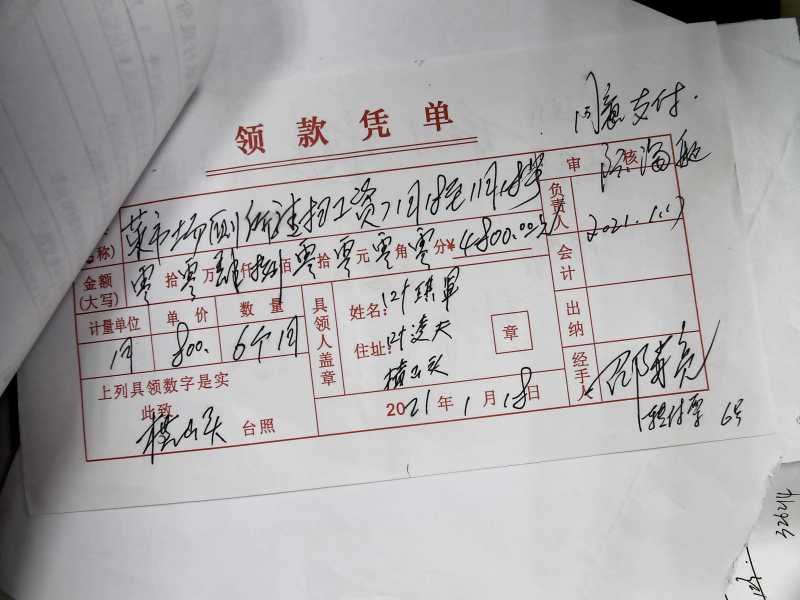 领款凭单
同意支付.
审核
称)
菜市场厕所清扫工资7月18至1月18号
负责人
2021.1.17
金额
(大写)
零拾零万肆仟捌佰零拾零元零角零分¥4800.00元
会计
计量单位 单价 数量
月 800. 6个月
具领人盖章
姓名:
住址:
横山头
章
出纳
上列具领数字是实
此致
横山头 台照
2021年1月18日
经手人
6号
326214